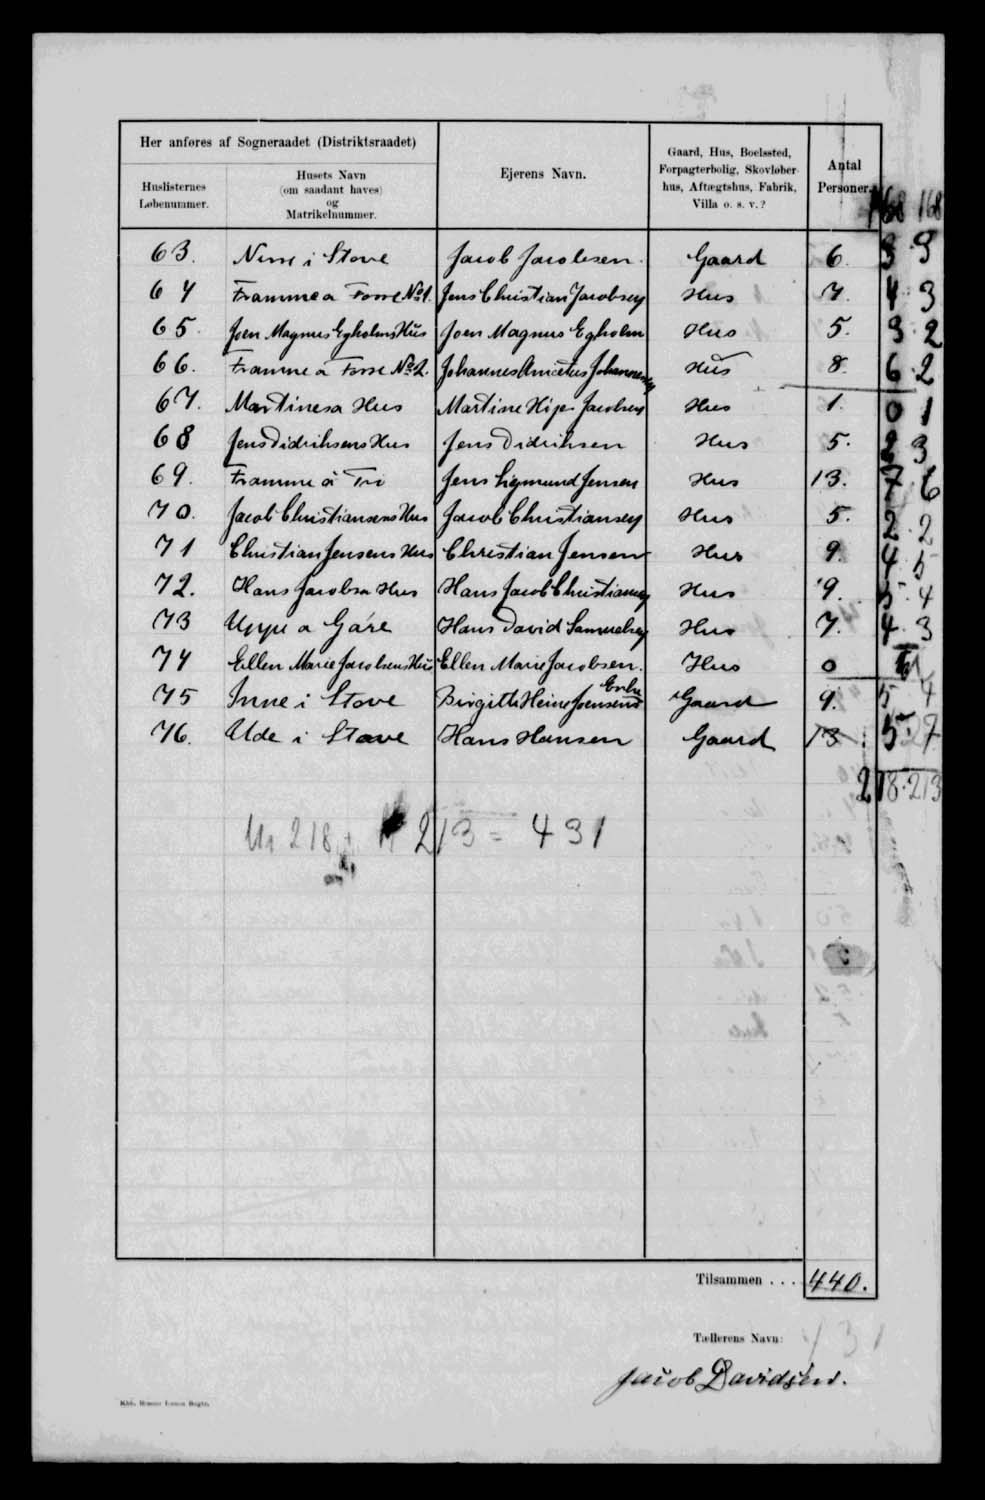 Her anføres af Sogneraadet (Distriktsraadet)
Huslisternes Løbenummer.
Husets Navn (om saadant haves) og Matrikelnummer.
Ejerens Navn.
Gaard, Hus, Boelssted, Forpagterbolig, Skovløberhus, Aftægtshus, Fabrik, Villa o. s. v.?
Antal Personer.
168 168
63. i Stove Jacob Jacobsen. Gaard 6. 3 3
64 Framme a No 1. Jens Christian Jacobsen Hus 7. 4 3
65. Joen Magnus Egholms Hus Joen Magnus Egholm Hus 5. 3 2
66. Framme a No 2. Johannes Johannesen Hus 8. 6 2
67. Martinesa Hus Martine Jacobsen Hus 1. 0 1
68 Jens Didriksens Hus Jens Didriksen Hus 5. 2 3
69. Framme a Tri Jens Sigmund Jensen Hus 13. 7 6
70. Jacob Christiansens Hus Jacob Christiansen Hus 5. 2 2
71 Christian Jensens Hus Christian Jensen Hus 9. 4 5
72. Hans Jacobsa Hus Hans Jacob Christiansen Hus 9. 5 4
73 Uppe a Gáre Hans David Samuelsen Hus 7. 4 3
74 Ellen Marie Jacobsens Hus Ellen Marie Jacobsen. Hus 0
75 Inne i Stove Birgitte Heine Joensens Enke Gaard 9. 5 4
76. Ude i Stove Hans Hansen Gaard 13 5 7
218 213
M 218 + 213 = 431
Tilsammen . . . 440.
Tællerens Navn: 431
Jacob Davidsen.